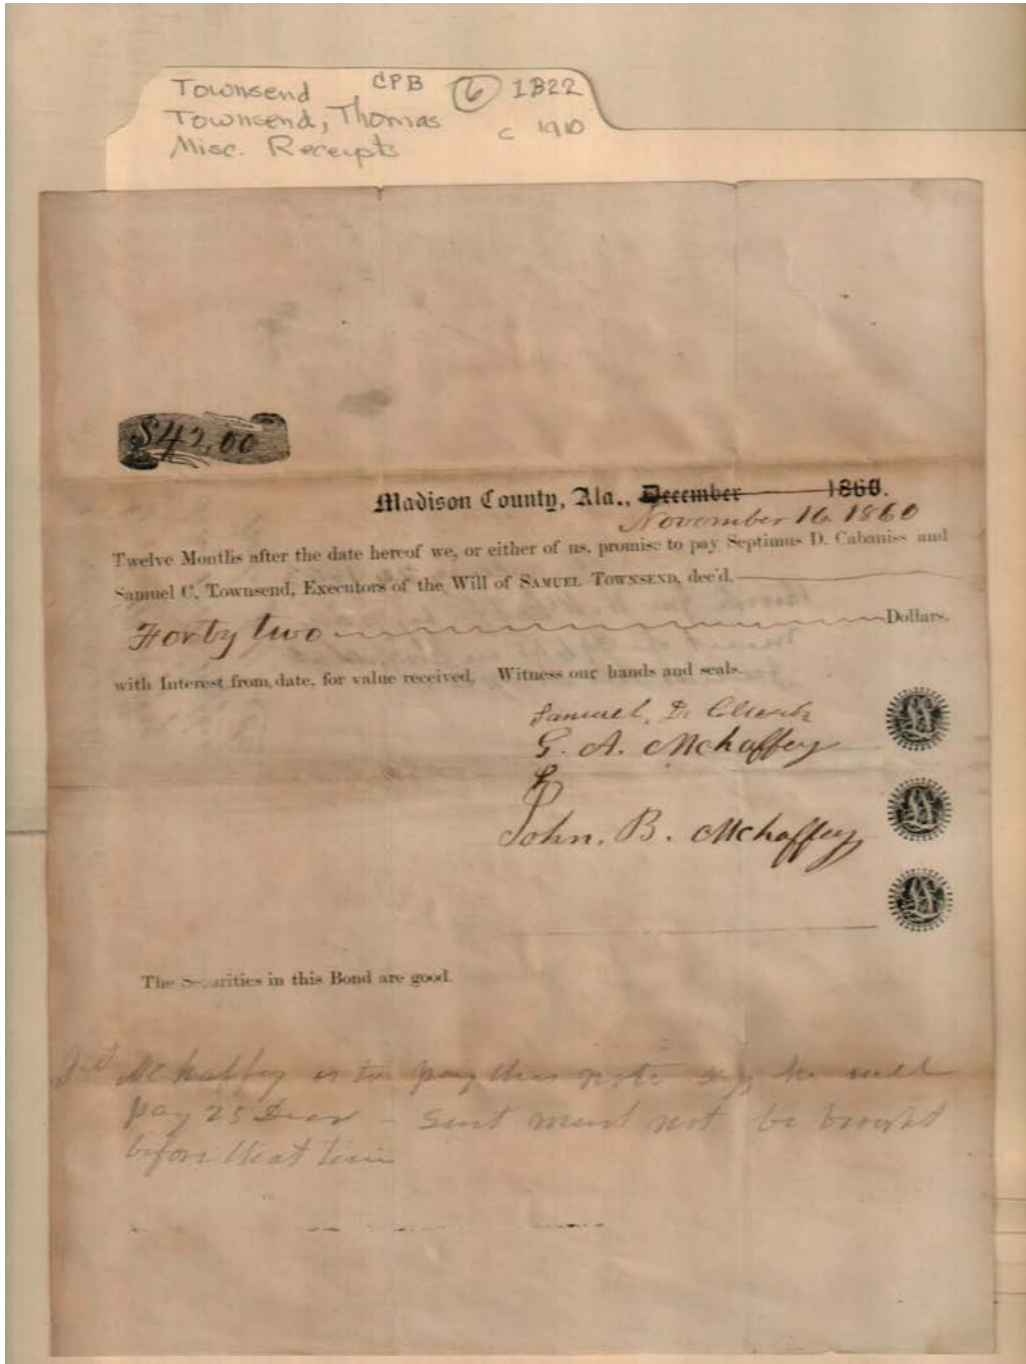 Townsend CPB 6 1822
Townsend, Thomas c 1910
Misc. Receipts
$42,00
Madison County, Ala., December 1860.
November 16 1860
Twelve Months after the date hereof we, or either of us, promise to pay Septimus D. Cabaniss and
Samuel C. Townsend, Executors of the Will of SAMUEL TOWNSEND, dec'd,
Forty two Dollars,
with Interest from date, for value received. Witness our hands and seals.
Samuel, D.
G. A. Mchaffey
John. B. Mchaffey
The Securities in this Bond are good.
Mchaffey is to pay this note says he will
pay 25 - Suit must not be brought
before that time